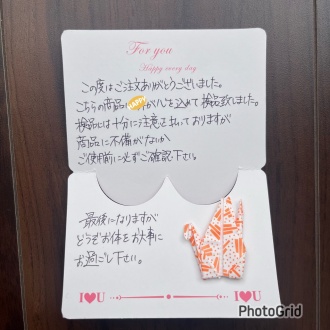 For you
Happy every day
この度はご注文ありがとうございました。
こちらの商品は HAPPY が心を込めて検品致しました。
検品には十分に注意を払っておりますが
商品に不備がないか、
ご使用前に必ずご確認下さい。
最後になりますが
どうぞお体をお大事に
お過ごし下さい。
I♥U I♥U
PhotoGrid